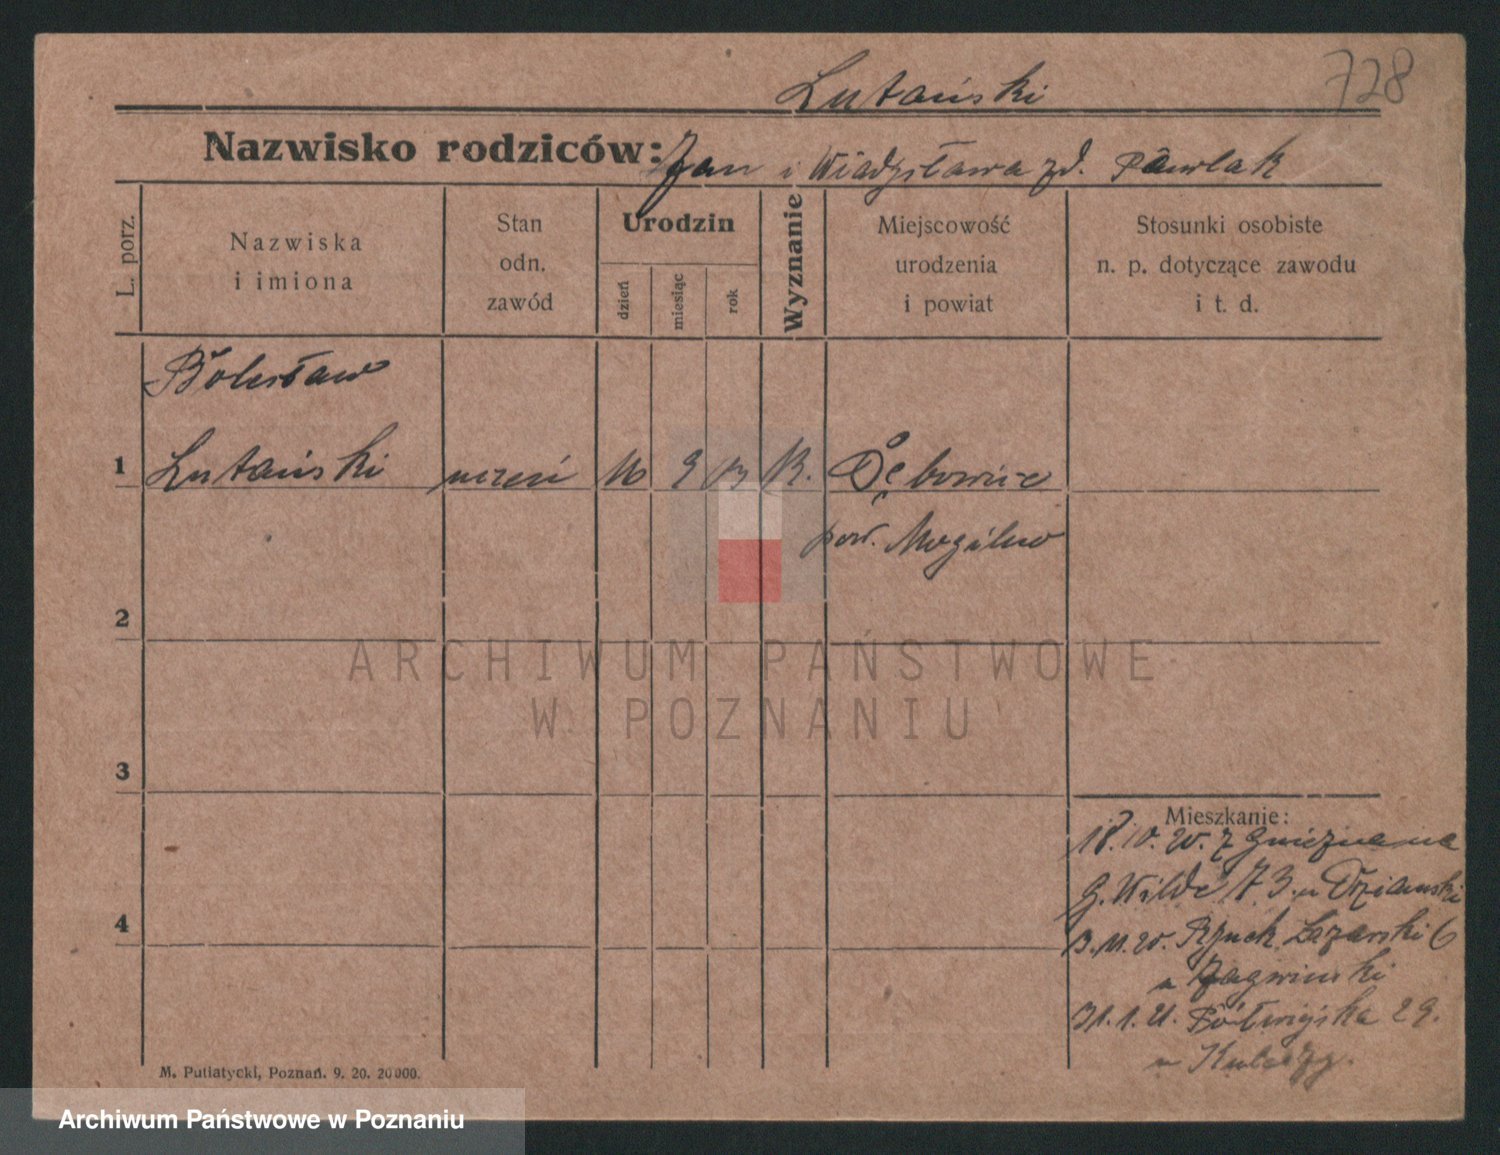 728
Lutański
Nazwisko rodziców: Jan i Władysława zd. Pawlak
L. porz.
Nazwiska
i imiona
Stan
odn.
zawód
Urodzin
dzień
miesiąc
rok
Wyznanie
Miejscowość
urodzenia
i powiat
Stosunki osobiste
n. p. dotyczące zawodu
i t. d.
Bolesław
1 Lutański uczeń 9 Dębowiec
pow. Mogilno
2
ARCHIWUM PAŃSTWOWE
W POZNANIU
3
Mieszkanie:
18.10.20. z Gniezna na
G. Wilde 73 u
4
3.11.20. Rynek Łazarski 6
u Jagwinski
31.1.21. Półwiejska 29.
u
M. Putiatycki, Poznań. 9. 20. 20000.
Archiwum Państwowe w Poznaniu